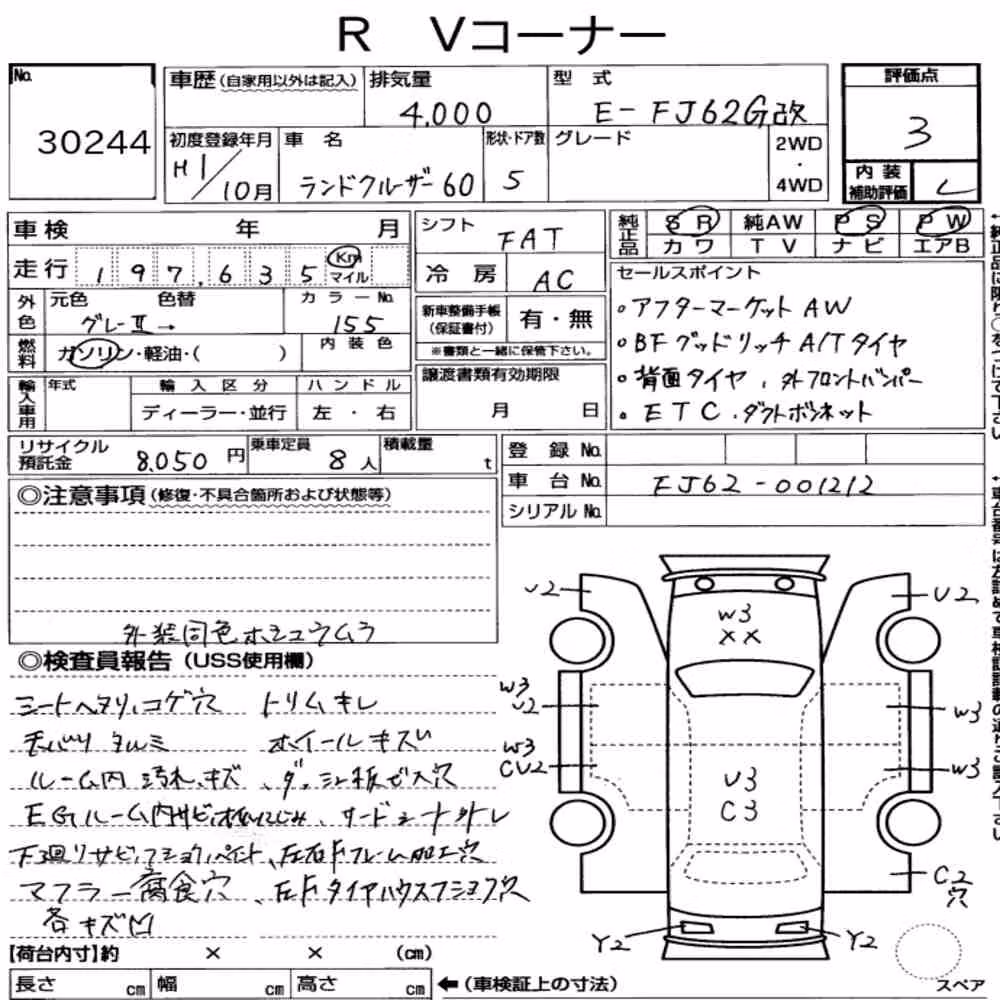 R Vコーナー
No.
30244
車歴 (自家用以外は記入)
排気量
4,000
型 式
E-FJ62G改
評価点
3
初度登録年月
H1/10月
車 名
ランドクルーザー60
形状・ドア数
5
グレード
2WD
・
4WD
内装
補助評価
車検 年 月
走行 197,635 Km
マイル
外色
元色 色替
グレーⅡ→
カラーNo.
155
燃料
ガソリン・軽油・( )
内装色
輸入車用
年式
輸入区分
ディーラー・並行
ハンドル
左・右
シフト
FAT
冷房
AC
新車整備手帳
(保証書付)
有・無
※書類と一緒に保管下さい。
譲渡書類有効期限
月 日
純正品
SR 純AW PS PW
カワ TV ナビ エアB
セールスポイント
・アフターマーケットAW
・BFグッドリッチA/Tタイヤ
・背面タイヤ、外フロントバンパー
・ETC、ダクトボンネット
リサイクル
預託金
8,050円
乗車定員
8人
積載量
t
登録No.
車台No. FJ62-001212
シリアルNo.
◎注意事項(修復・不具合箇所および状態等)
外装同色ホシュウムラ
◎検査員報告(USS使用欄)
シートヘタリ、コゲ穴 トリムキレ
毛バリタルミ ホイールキズ
ルーム内汚れ、キズ、ダッシュ板ビス穴
EGルーム内サビ、オイルにじみ、サードシート外レ
下廻リサビ、フショク、ペイント、左右Fフレーム加工穴
マフラー腐食穴、左Fタイヤハウスフショク穴
各キズ凹
U2
U2
W3
××
W3
U2
W3
CU2
W3
W3
U3
C3
C2
穴
Y2
Y2
スペア
【荷台内寸】約 × × (cm)
長さ cm 幅 cm 高さ cm
←(車検証上の寸法)